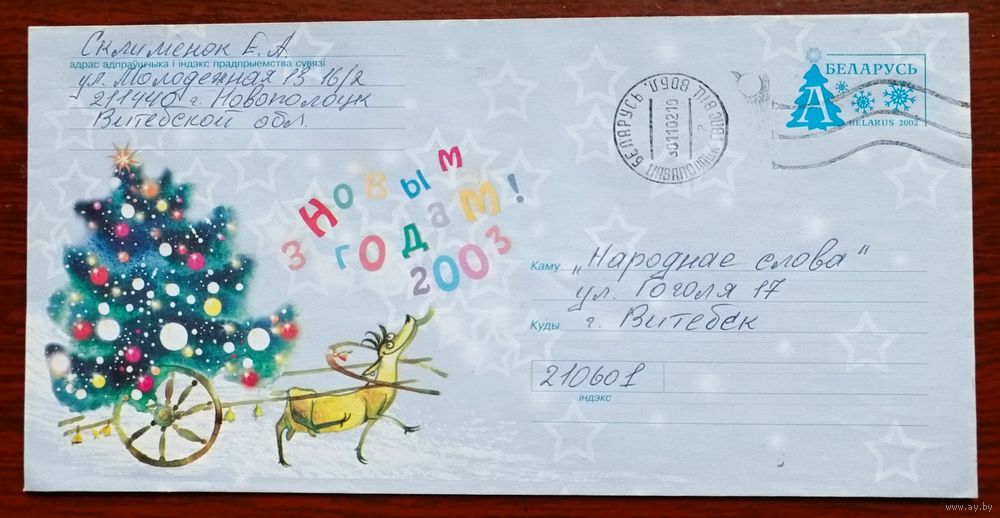 Склименок Е. А.
адрас адпраўшчыка і індэкс прадпрыемства сувязі
ул. Молодежная 13 16/2
211440 г. Новополоцк
Витебской обл.
БЕЛАРУСЬ
A
BELARUS 2002
БЕЛАРУСЬ
301102 10
З Новым
годам!
2003
Каму „Народнае слова"
ул. Гоголя 17
Куды г. Витебск
210601
індэкс
www.ay.by